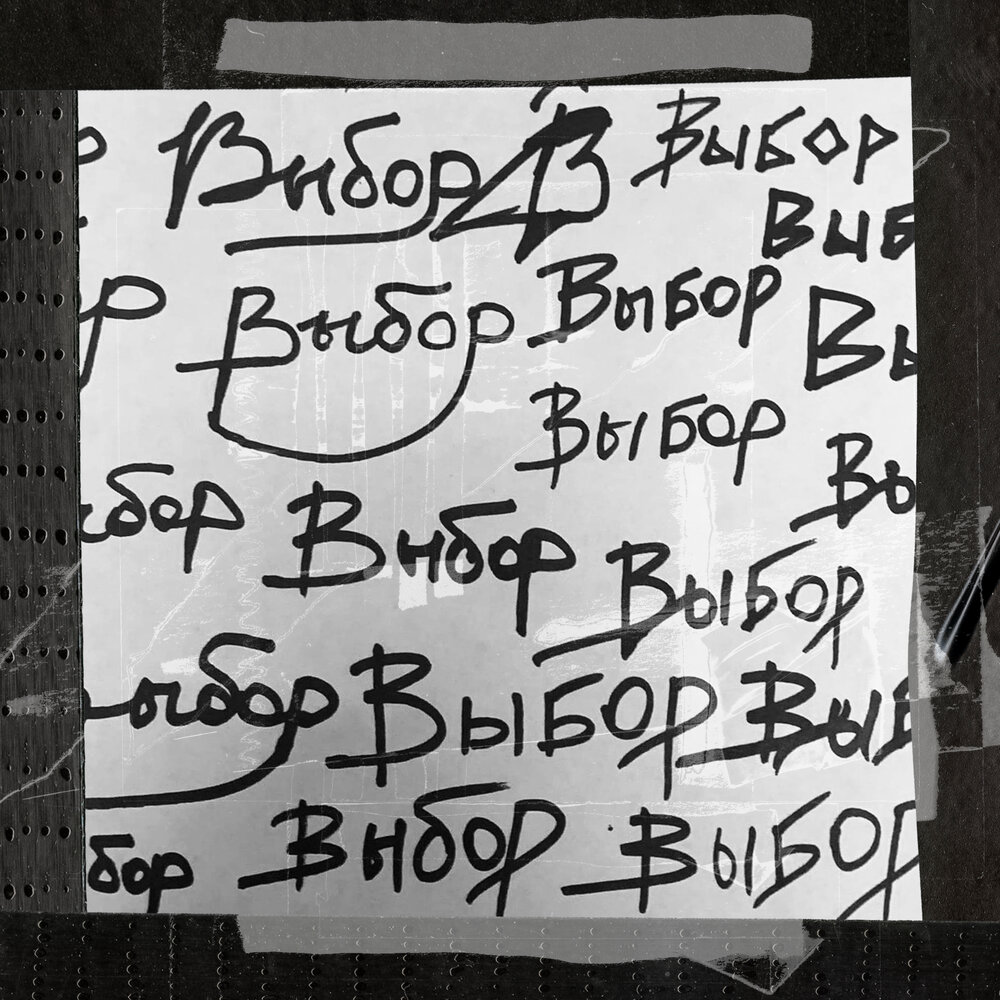 р Выбор В Выбор
Выб
р Выбор Выбор Вы
Выбор
ыбор Выбор Вы
Выбор
ыбор Выбор Выб
бор Выбор Выбор